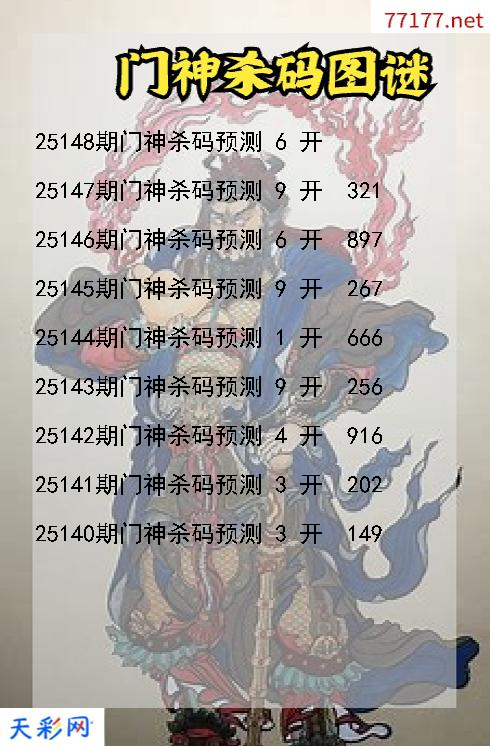 77177.net
门神杀码图谜
25148期门神杀码预测 6 开
25147期门神杀码预测 9 开 321
25146期门神杀码预测 6 开 897
25145期门神杀码预测 9 开 267
25144期门神杀码预测 1 开 666
25143期门神杀码预测 9 开 256
25142期门神杀码预测 4 开 916
25141期门神杀码预测 3 开 202
25140期门神杀码预测 3 开 149
天彩网